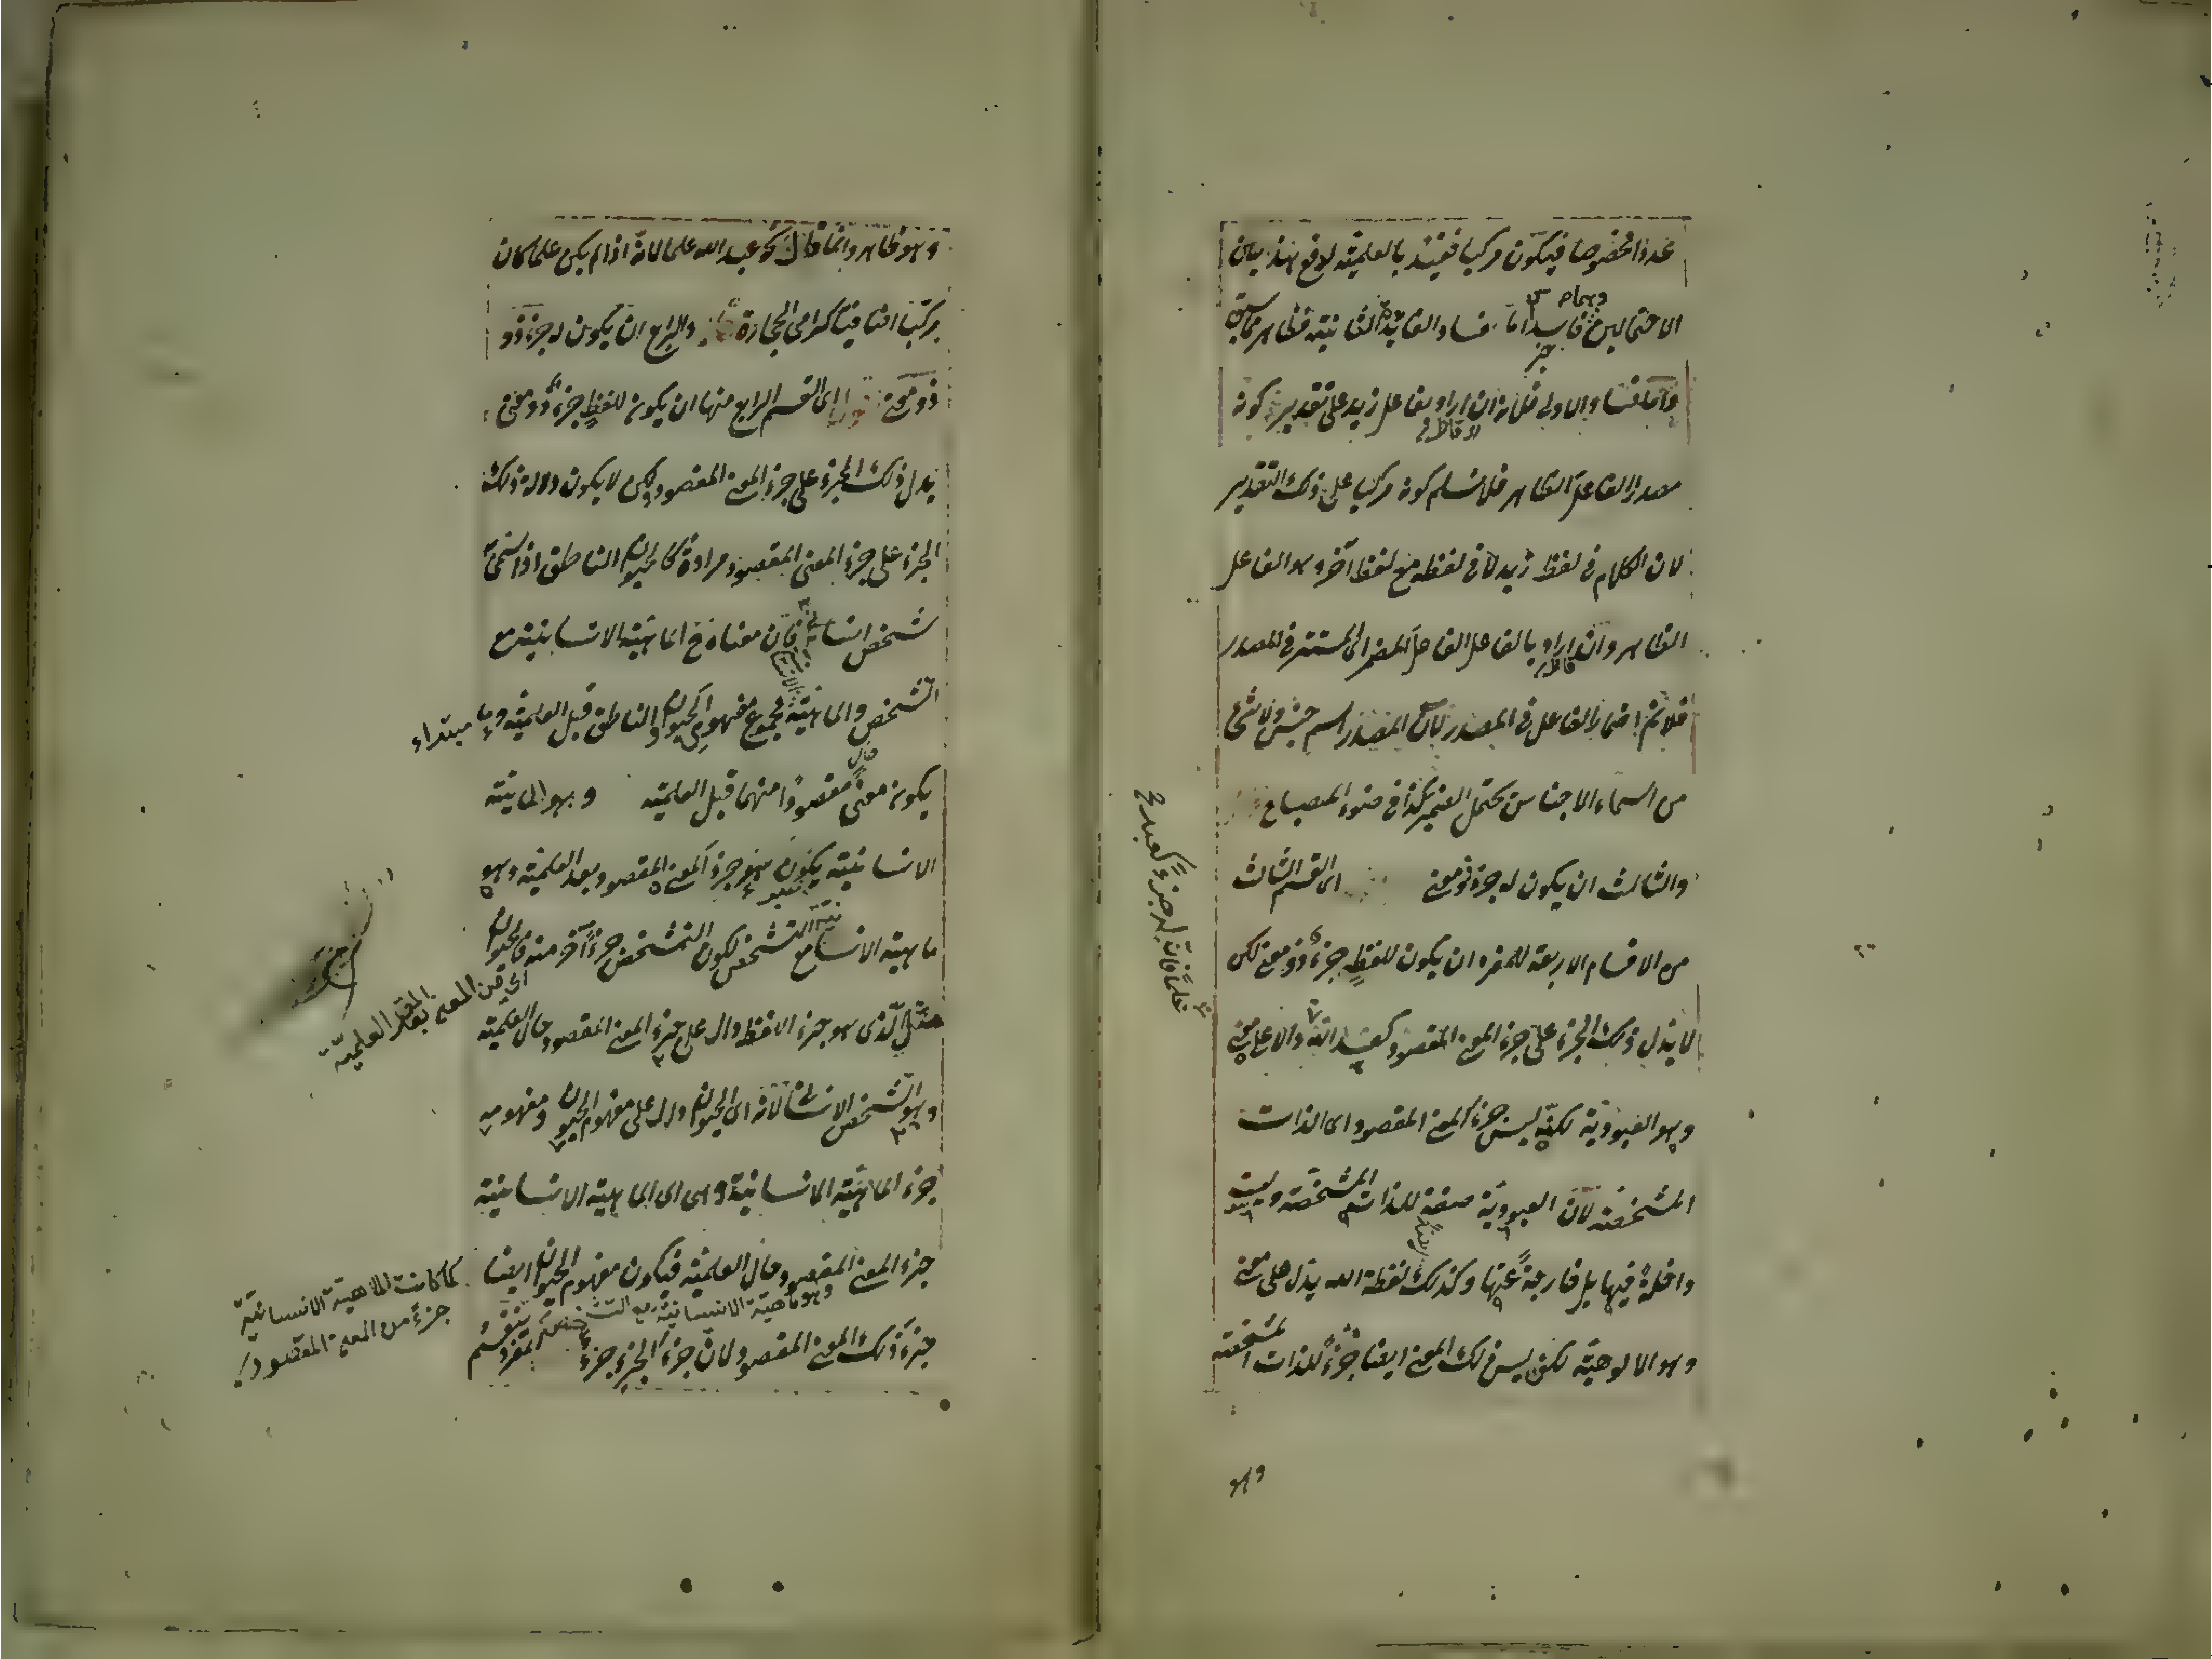 عددا مخصوصا فيكون مركبا فقيد بالعلمية لدفع هذين
الاحتمالين وهما فاسدا اما فساد الفائدة الثانية فظاهر مما سبق
واما فساد الاولى فلانه ان اراد بفاعل زيد على تقدير كونه
مصدرا الفاعل الظاهر فلا نسلم كونه مركبا على ذلك التقدير
لان الكلام في لفظ زيد لا في لفظه مع لفظ آخر وهو الفاعل
الظاهر وان اراد بالفاعل الفاعل المضمر اي المستتر في المصدر
فلا نم اضمار الفاعل في المصدر لان المصدر اسم جنس ولا شئ
من اسماء الاجناس يحتمل الضمير كذا في ضوء المصباح
والثالث ان يكون له جزء ذو معنى اى القسم الثالث
من الاقسام الاربعة للمفرد ان يكون للفظ جزء ذو معنى لكن
لا يدل ذلك الجزء على جزء المعنى المقصود كعبد الله دالا على معنى
وهو العبودية لكنه ليس جزء المعنى المقصود اى الذات
المشخصة لان العبودية صفة للذات المشخصة وليست
داخلة فيها بل خارجة عنها وكذلك لفظة الله يدل على معنى
وهو الالوهية لكن ليس ذلك المعنى ايضا جزء للذات المشخصة
وهو
علما فانه له جزء كعبد
وهو ظاهر وانما قال نحو عبد الله علما لانه اذا لم يكن علما كان
مركبا اضافيا كرامى الحجارة والرابع ان يكون له جزء ذو
ذو معنى اى القسم الرابع منها ان يكون للفظ جزء ذو معنى
يدل ذلك الجزء على جزء المعنى المقصود ولكن لا يكون دلالة ذلك
الجزء على جزء المعنى المقصود مرادة كالحيوان الناطق اذا سمى به
شخص انسانى فان معناه ح الماهية الانسانية مع
التشخص والماهية مجموع مفهومى الحيوان والناطق قبل العلمية وما مبتداء
يكون معنى مقصودا منهما قبل العلمية وهو الماهية
الانسانية يكون جزء المعنى المقصود بعد العلمية وهو
ماهية الانسانية مع التشخص لكون التشخص جزءا آخر منه فالحيوان
مثلا الذى هو جزء اللفظ دال على جزء المعنى المقصود حال العلمية
وهو الشخص الانسانى لانه اى الحيوان دال على مفهوم الحيوان ومفهومه
جزء الماهية الانسانية وهى اى الماهية الانسانية
جزء المعنى المقصود حال العلمية فيكون مفهوم الحيوان ايضا
وهو ماهية الانسانية مع التشخص
جزء ذلك المعنى المقصود لان جزء الجزء جزء
اى من المعنى المقصود بعد العلمية
كما كانت الماهية الانسانية
جزء من المعنى المقصود